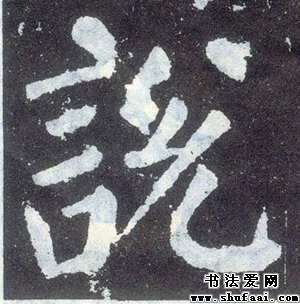 説
书法爱网
www.shufaai.com